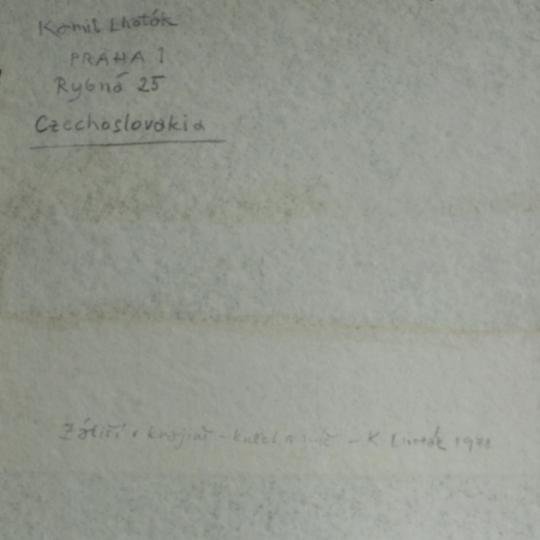 Kamil Lhoták
PRAHA 1
Rybná 25
Czechoslovakia
Zátiší v krajině - kužel a míč - K Lhoták